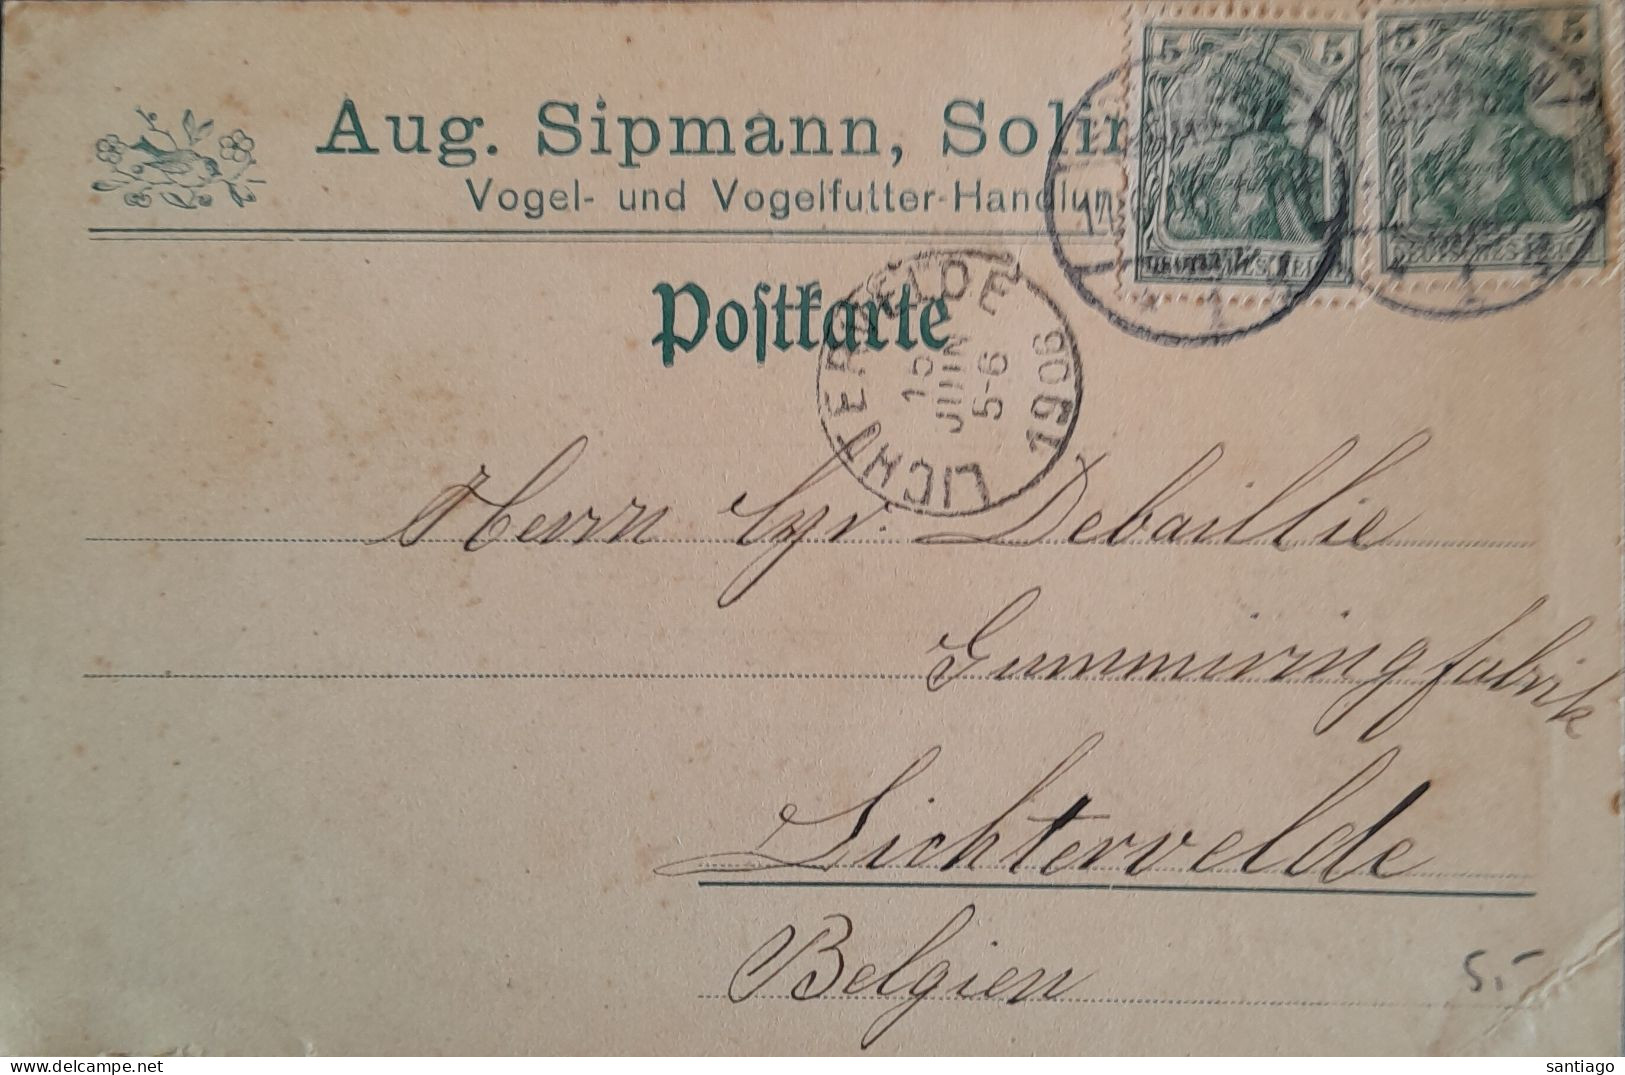 Aug. Sipmann, Solin
Vogel- und Vogelfutter-Handlun
5 5
5 5
DEUTSCHES REICH
DEUTSCHES REICH
Postkarte
LICHTERVELDE
15
JUIN
5-6
1906
Herrn Cyr. Debaillie
Gummiringfabrik
Lichtervelde
Belgien
5.-
santiago